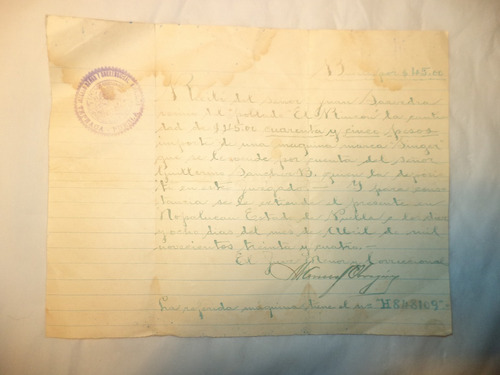 por $45.00
Recibí del señor Juan Saavedra
del poblado El Rincon la canti-
dad de $45.00 cuarenta y cinco pesos
importe de una maquina marca Singer
que se le vende por cuenta del señor
Guillermo Sanchez quien la deposi-
tó en este juzgado.— Y para cons-
tancia se le extiende el presente en
Nopalucan Estado de Puebla a los diez
y ocho dias del mes de Abril de mil
novecientos treinta y cuatro.—
El Juez Menor y Correccional
La referida maquina tiene el no "H848109".-